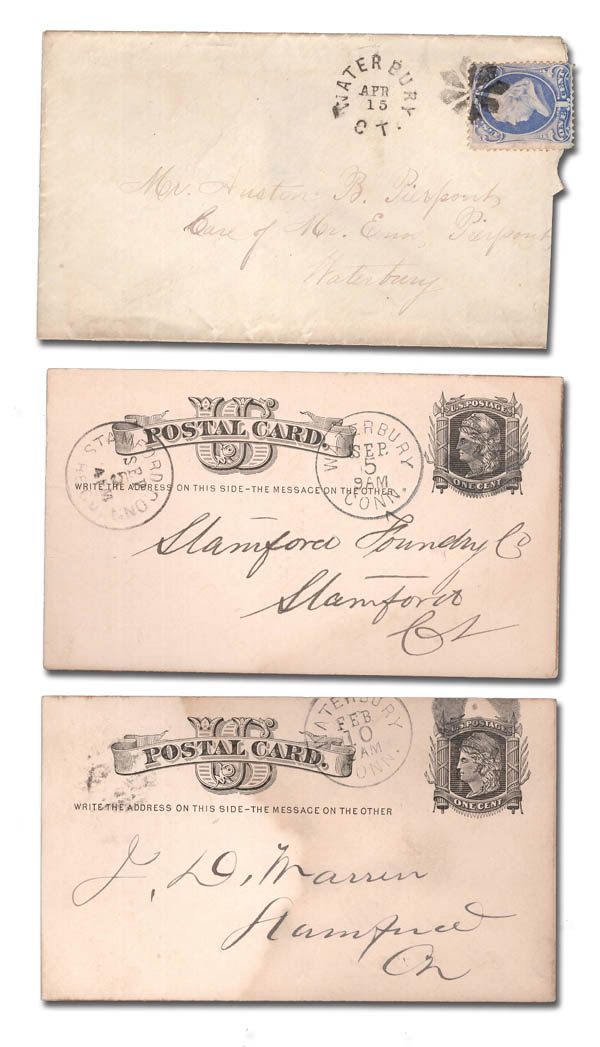 WATERBURY
APR
15
CT.
ONE CENT
Mr. Austin B. Pierpont
Care of Mr. Enos Pierpont
Waterbury
US
POSTAL CARD.
U.S. POSTAGE
ONE CENT
STAMFORD CONN
SEP
5
WATERBURY
SEP.
5
9AM
CONN.
WRITE THE ADDRESS ON THIS SIDE-THE MESSAGE ON THE OTHER
Stamford Foundry Co
Stamford
Ct
US
POSTAL CARD.
WATERBURY
FEB
10
AM
CONN.
U.S. POSTAGE
ONE CENT
WRITE THE ADDRESS ON THIS SIDE-THE MESSAGE ON THE OTHER
J. D. Warren
Stamford